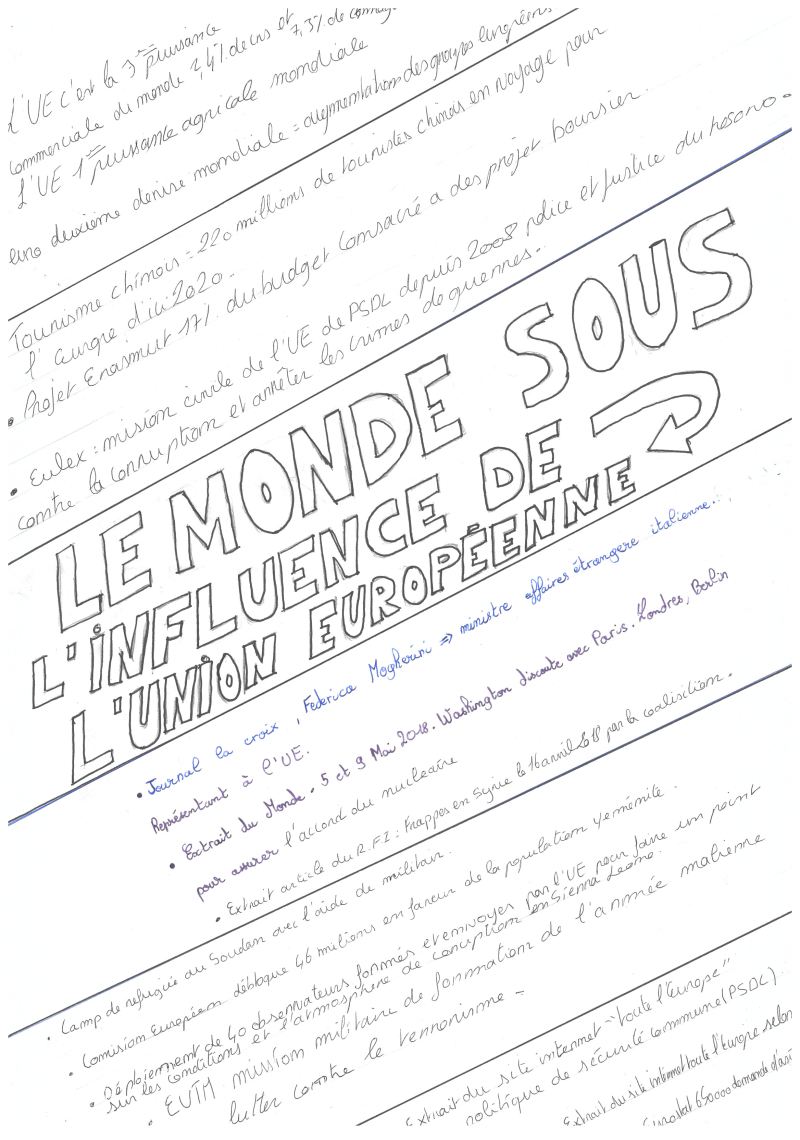 L'UE c'est la 3ème puissance
commerciale du monde 2,4% de cns et 7,3% de
L'UE 1ère puissance agricale mondiale
Une deuxième denise mondiale = augmentation des groupes européens
Tourisme chinois = 220 millions de touristes chinois en voyage pour
l'europe d'ici 2020.
• Projet Erasmut 17% du budget consacré a des projet boursier.
• Eulex : mission civile de l'UE de PSDC depuis 2008 police et justice du kosovo.
contre la corruption et arrêter les crimes de guerres.
LE MONDE SOUS
L'INFLUENCE DE
L'UNION EUROPÉENNE
• Journal la croix, Federica Mogherini => ministre affaires étrangere italienne.
Représentant à l'UE.
• Extrait du Monde. 5 et 9 Mai 2018. Washington discute avec Paris. Londres, Berlin
pour assurer l'accord du nucleaire
• Extrait article du R.F.I : Frappes en Syrie le 16 avril 2018 par la coalisition.
• Camp de refugiée au Soudan avec l'aide de militair.
• Comision Européen débloque 46 milions en faveur de la population yeménite.
• Déploiement de 40 observateurs formés et envoyes par l'UE pour faire un point
sur les conditions et l'atmosphère de corruption en Sierra Leone.
• EUTM mission militaire de formation de l'armée malienne
lutter contre le terrorisme -
Extrait du site internet "toute l'europe"
politique de sécurité commune (PSDC)
Extrait du site internet toute l'europe selon
Eurostat 650000 demande d'asi